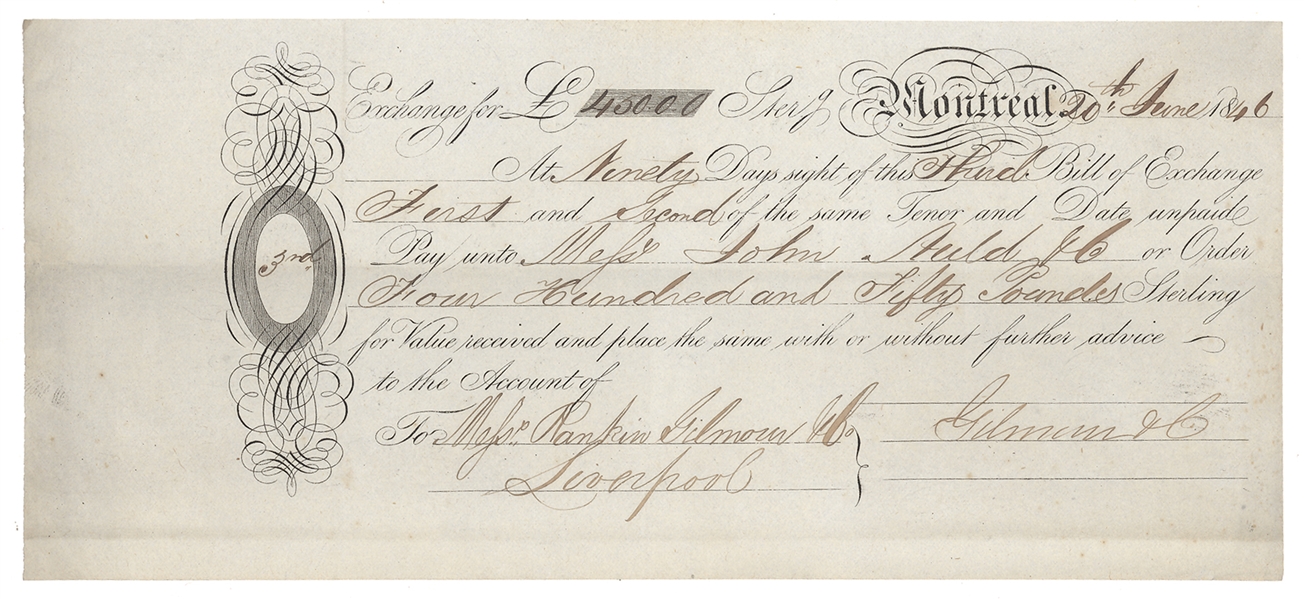 Exchange for £ 450-0-0 Sterg Montreal 20th June 1846
At Ninety Days sight of this Third Bill of Exchange
First and Second of the same Tenor and Date unpaid
3rd
Pay unto Messrs John Auld & Co or Order
Four Hundred and Fifty Poundes Sterling
for Value received and place the same with or without further advice
to the Account of
To Messrs Rankin Gilmour & Co
Gilmour & Co
Liverpool